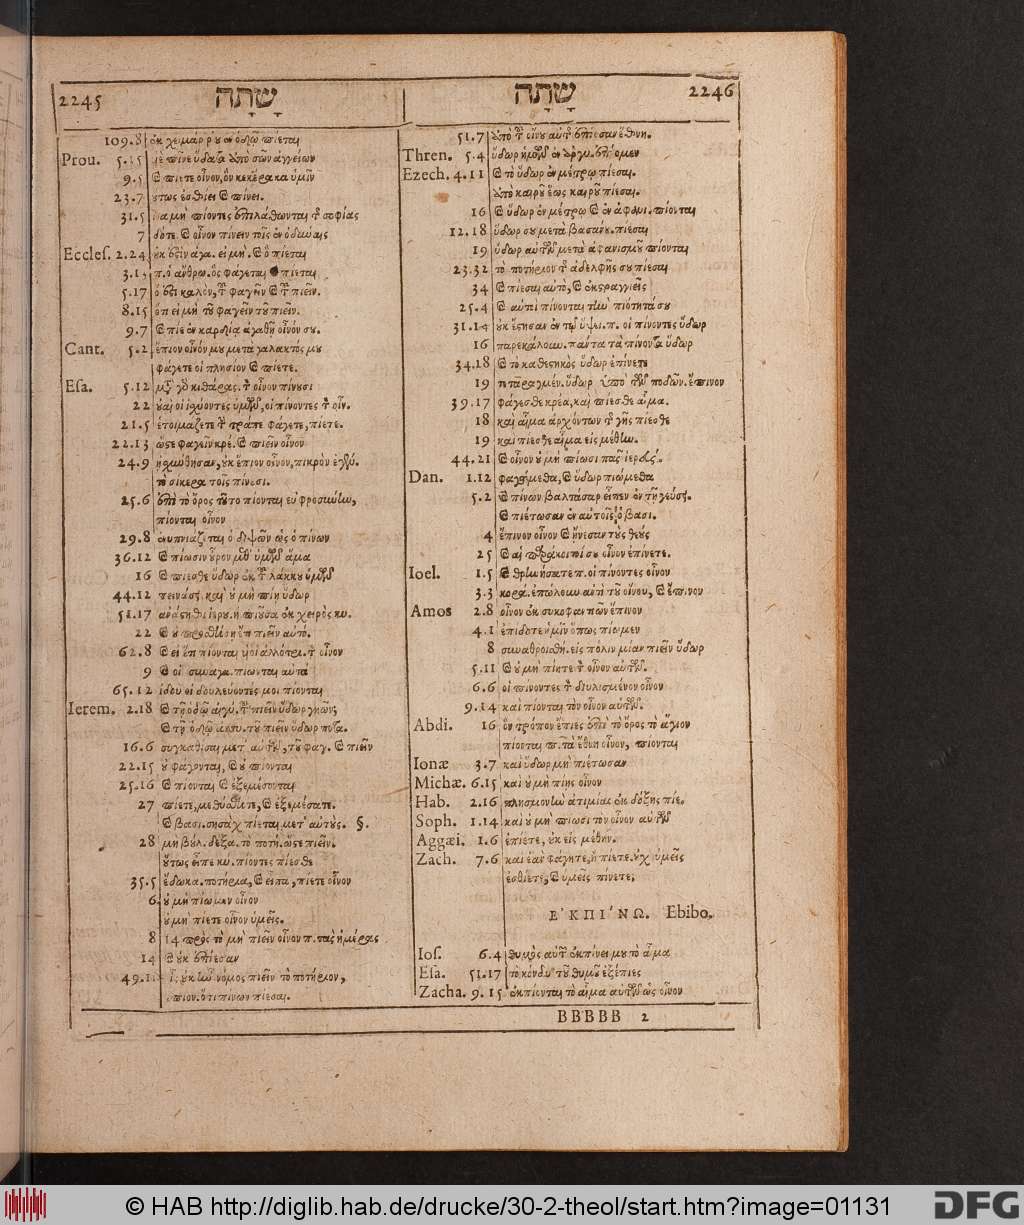 2245 שָׁתָה
109.8 ἐκ χειμάρρου ἐν ὁδῷ πίεται
Prou. 5.15 πῖνε ὕδατα ἀπὸ σῶν ἀγγείων
9.5 καὶ πίετε οἶνον, ὃν κεκέρακα ὑμῖν
23.7 οὕτως ἐσθίει καὶ πίνει.
31.5 ἵνα μὴ πίοντες ἐπιλάθωνται τῆς σοφίας
7 δότε. καὶ οἶνον πίνειν τοῖς ἐν ὀδύναις
Eccles. 2.24 οὐκ ἔστιν ἀγα. εἰ μὴ. καὶ ὃ πίεται
3.1 π. ὁ ἄνθρω. ὃς φάγεται πίεται
5.17 ὅ ἐστι καλὸν, τοῦ φαγεῖν καὶ τοῦ πιεῖν.
8.15 ὅτι εἰ μὴ τοῦ φαγεῖν τοῦ πιεῖν.
9.7 καὶ πίε ἐν καρδίᾳ ἀγαθῇ οἶνόν σου.
Cant. 5.2 ἔπιον οἶνόν μου μετὰ γάλακτός μου
φάγετε οἱ πλησίον καὶ πίετε.
Esa. 5.12 κιθάρας. τὸν οἶνον πίνουσι
22 οὐαὶ οἱ ἰσχύοντες ὑμῶν, οἱ πίνοντες τὸν οἶν.
21.5 ἑτοιμάζετε τὴν τράπε φάγετε, πίετε.
22.13 ὥστε φαγεῖν κρέ. καὶ πιεῖν οἶνον
24.9 ᾐσχύνθησαν, οὐκ ἔπιον οἶνον, πικρὸν ἐγέν.
τὸ σίκερα τοῖς πίνουσι.
25.6 ἐπὶ τὸ ὄρος τοῦτο πίονται εὐφροσύνην,
πίονται οἶνον
29.8 ἐνυπνιάζεται ὁ διψῶν ὡς ὁ πίνων
36.12 καὶ πίωσιν οὖρον μεθ' ὑμῶν ἅμα
16 καὶ πίεσθε ὕδωρ ἐκ τοῦ λάκκου ὑμῶν
44.12 πεινάσει. καὶ οὐ μὴ πίῃ ὕδωρ
51.17 ἀνάστηθι ἱερου. ἡ πιοῦσα ἐκ χειρὸς κυ.
22 καὶ οὐ προσθήσῃ ἔτι πιεῖν αὐτό.
62.8 καὶ εἰ ἔτι πίονται υἱοὶ ἀλλότρι. τὸν οἶνον
9 καὶ οἱ συναγα. πίονται αὐτὰ
65.12 ἰδοὺ οἱ δουλεύοντές μοι πίονται
Ierem. 2.18 καὶ τῇ ὁδῷ αἰγυ. τοῦ πιεῖν ὕδωρ γηῶν;
καὶ τῇ ὁδῷ ἀσσυ. τοῦ πιεῖν ὕδωρ ποτα.
16.6 συγκαθίσαι μετ' αὐτῶν, τοῦ φαγ. καὶ πιεῖν
22.15 οὐ φάγονται, καὶ οὐ πίονται
25.16 καὶ πίονται καὶ ἐξεμέσονται
27 πίετε, μεθύσθητε, καὶ ἐξεμέσατε.
καὶ βασι. σησὰχ πίεται μετ' αὐτούς. §.
28 μὴ βούλ. δέξα. τὸ ποτή. ὥστε πιεῖν.
οὕτως εἶπε κυ. πίοντες πίεσθε
35.5 ἔδωκα. ποτήρια, καὶ εἶπα, πίετε οἶνον
6 οὐ μὴ πίωμεν οἶνον
οὐ μὴ πίετε οἶνον ὑμεῖς.
8 14 πρὸς τὸ μὴ πιεῖν οἶνον π. τὰς ἡμέρας
14 καὶ οὐκ ἐπίεσαν
49.1 οὐκ ἦν νόμος πιεῖν τὸ ποτήριον,
πίον. ὅτι πίνων πίεσαι.
שָׁתָה 2246
51.7 ἀπὸ τοῦ οἴνου αὐτῆς ἐπίεσαν ἔθνη.
Thren. 5.4 ὕδωρ ἡμῶν ἐν ἀργυ. ἐπίομεν
Ezech. 4.11 καὶ τὸ ὕδωρ ἐν μέτρῳ πίεσαι.
ἀπὸ καιροῦ ἕως καιροῦ πίεσαι.
16 καὶ ὕδωρ ἐν μέτρῳ καὶ ἐν ἀφανι. πίονται
12.18 ὕδωρ σου μετὰ βασάνου. πίεσαι
19 ὕδωρ αὐτῶν μετὰ ἀφανισμοῦ πίονται
23.32 τὸ ποτήριον τῆς ἀδελφῆς σου πίεσαι
34 καὶ πίεσαι αὐτὸ, καὶ ἐκστραγγιεῖς
25.4 καὶ αὐτοὶ πίνονται τὴν πιότητά σου
31.14 οὐκ ἔστησαν ἐν τῷ ὕψει. π. οἱ πίνοντες ὕδωρ
16 παρεκάλουν. πάντα τὰ πίνοντα ὕδωρ
34.18 καὶ τὸ καθεστηκὸς ὕδωρ ἐπίνετε
19 τεταραγμέν. ὕδωρ ὑπὸ τῶν ποδῶν. ἔπινον
39.17 φάγεσθε κρέα, καὶ πίεσθε αἷμα.
18 καὶ αἷμα ἀρχόντων τῆς γῆς πίεσθε
19 καὶ πίεσθε αἷμα εἰς μέθην.
44.21 καὶ οἶνον οὐ μὴ πίωσι πᾶς ἱερεὺς.
Dan. 1.12 φαγώμεθα, καὶ ὕδωρ πιώμεθα
5.2 καὶ πίνων βαλτάσαρ εἶπεν ἐν τῇ γεύσ.
καὶ πιέτωσαν ἐν αὐτοῖς ὁ βασι.
4 ἔπινον οἶνον καὶ ᾔνεσαν τοὺς θεούς
25 καὶ αἱ παράκοιτοί σου οἶνον ἐπίνετε.
Ioel. 1.5 καὶ θρηνήσατε π. οἱ πίνοντες οἶνον
3.3 κορά. ἐπώλουν ἀντὶ τοῦ οἴνου, καὶ ἔπινον
Amos 2.8 οἶνον ἐκ συκοφαντιῶν ἔπινον
4.1 ἐπίδοτε ἡμῖν ὅπως πίωμεν
8 συναθροισθή. εἰς πόλιν μίαν πιεῖν ὕδωρ
5.11 καὶ οὐ μὴ πίητε τὸν οἶνον αὐτῶν.
6.6 οἱ πίνοντες τὸν διυλισμένον οἶνον
9.14 καὶ πίονται τὸν οἶνον αὐτῶν.
Abdi. 16 ὃν τρόπον ἔπιες ἐπὶ τὸ ὄρος τὸ ἅγιον
πίονται π. τὰ ἔθνη οἶνον, πίονται
Ionæ 3.7 καὶ ὕδωρ μὴ πιέτωσαν
Michæ. 6.15 καὶ οὐ μὴ πίης οἶνον
Hab. 2.16 πλησμονὴν ἀτιμίας ἐκ δόξης πίε.
Soph. 1.14 καὶ οὐ μὴ πίωσι τὸν οἶνον αὐτῶν
Aggæi. 1.6 ἐπίετε, οὐκ εἰς μέθην.
Zach. 7.6 καὶ ἐὰν φάγητε, ἢ πίετε. οὐχ ὑμεῖς
ἐσθίετε, καὶ ὑμεῖς πίνετε;
Ε᾿ΚΠΙ´ΝΩ. Ebibo.
Ios. 6.4 θυμὸς αὐτῶν ἐκπίνει μου τὸ αἷμα
Esa. 51.17 τὸ κόνδυ τοῦ θυμοῦ ἐξέπιες
Zacha. 9.15 ἐκπίονται τὸ αἷμα αὐτῶν ὡς οἶνον
BBBBB 2
© HAB http://diglib.hab.de/drucke/30-2-theol/start.htm?image=01131
DFG